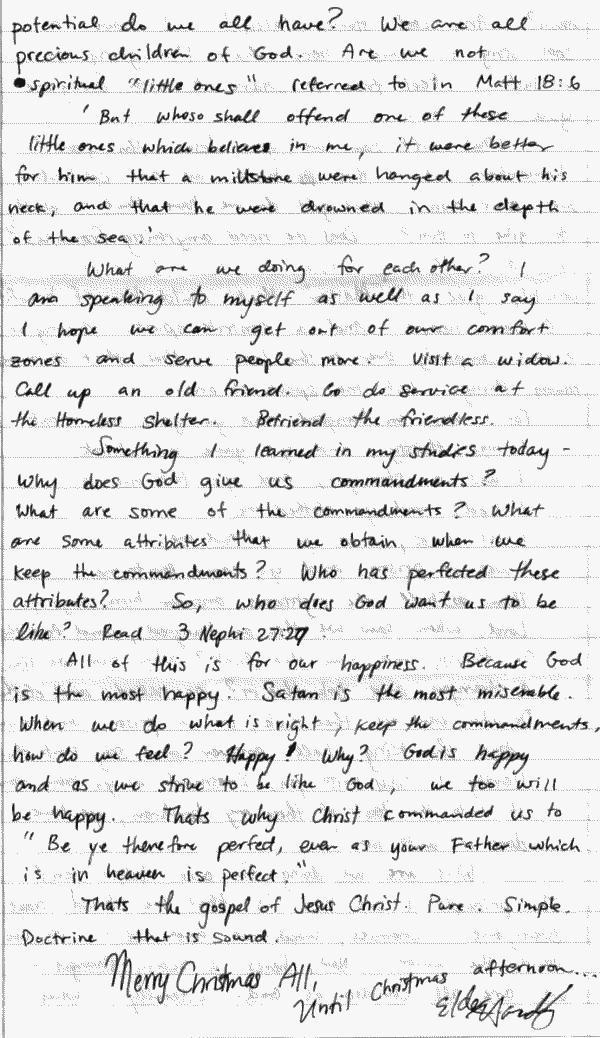 potential do we all have? We are all
precious children of God. Are we not
spiritual "little ones" referred to in Matt 18:6
'But whoso shall offend one of these
little ones which believes in me, it were better
for him that a millstone were hanged about his
neck, and that he were drowned in the depth
of the sea.'
What are we doing for each other? I
am speaking to myself as well as I say
I hope we can get out of our comfort
zones and serve people more. Visit a widow.
Call up an old friend. Go do service at
the Homeless Shelter. Befriend the friendless.
Something I learned in my studies today -
Why does God give us commandments?
What are some of the commandments? What
are some attributes that we obtain when we
keep the commandments? Who has perfected these
attributes? So, who does God want us to be
like? Read 3 Nephi 27:27.
All of this is for our happiness. Because God
is the most happy. Satan is the most miserable.
When we do what is right, keep the commandments,
how do we feel? Happy! Why? God is happy
and as we strive to be like God, we too will
be happy. Thats why Christ commanded us to
"Be ye therefore perfect, even as your Father which
is in heaven is perfect."
Thats the gospel of Jesus Christ. Pure. Simple.
Doctrine that is sound.
Merry Christmas All,
Until Christmas afternoon...
Elder